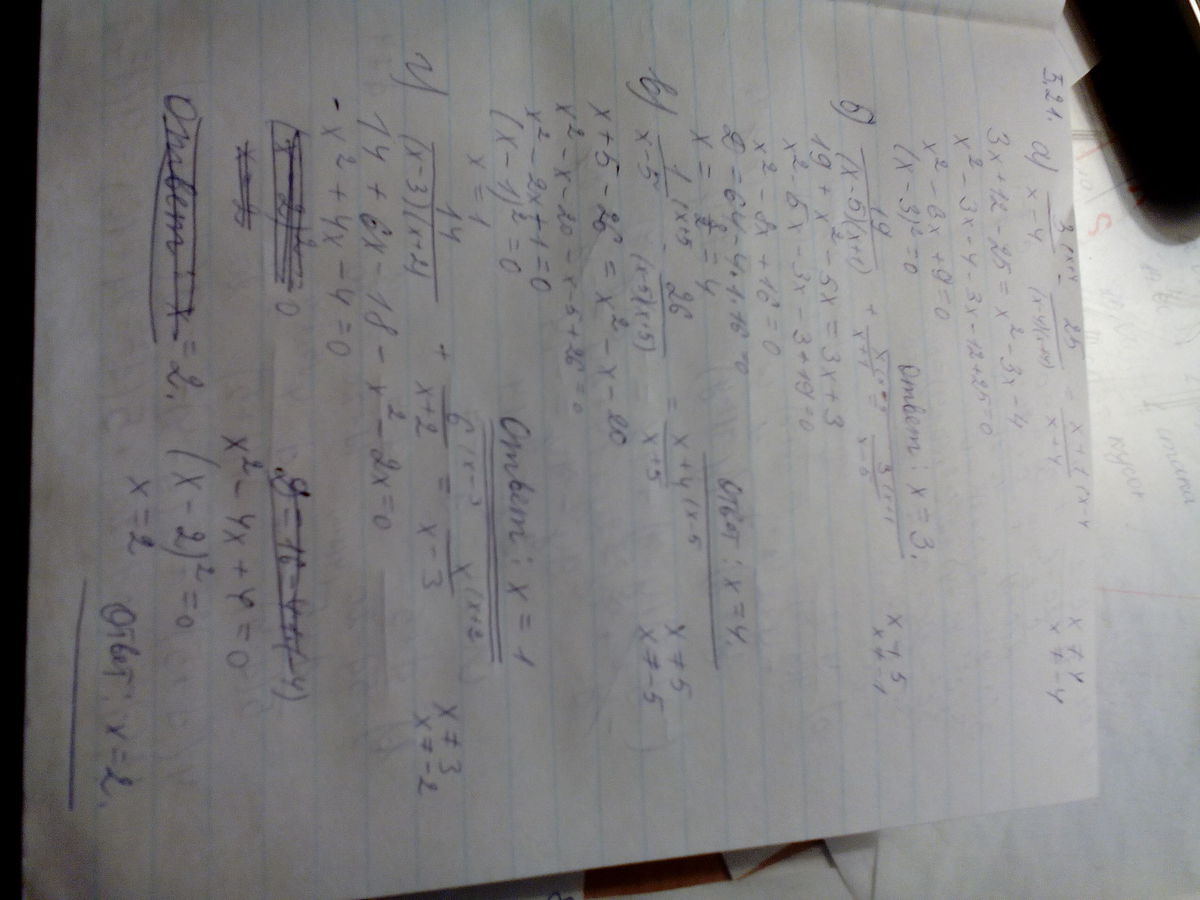 5.21.
а) 3 (x+4 / x-4 - 25 / (x-4)(x+4) = x+1 (x-4 / x+4 x ≠ 4
x ≠ -4
3x + 12 - 25 = x² - 3x - 4
x² - 3x - 4 - 3x - 12 + 25 = 0
x² - 6x + 9 = 0
(x - 3)² = 0 Ответ: x = 3.
б) 19 / (x-5)(x+1) + x (x-5 / x+1 = 3 (x+1 / x-5 x ≠ 5
x ≠ -1
19 + x² - 5x = 3x + 3
x² - 5x - 3x - 3 + 19 = 0
x² - 8x + 16 = 0
D = 64 - 4·1·16 = 0
x = 8/2 = 4 Ответ: x = 4.
в) 1 (x+5 / x-5 - 26 / (x-5)(x+5) = x+4 (x-5 / x+5 x ≠ 5
x ≠ -5
x + 5 - 26 = x² - x - 20
x² - x - 20 - x - 5 + 26 = 0
x² - 2x + 1 = 0
(x - 1)² = 0
x = 1 Ответ: x = 1
г) 14 / (x-3)(x+2) + 6 (x-3 / x+2 = x (x+2 / x-3 x ≠ 3
x ≠ -2
14 + 6x - 18 - x² - 2x = 0
- x² + 4x - 4 = 0
(x - 2)² = 0
x² - 4x + 4 = 0
Ответ: x = 2. (x - 2)² = 0
x = 2
Ответ: x = 2.